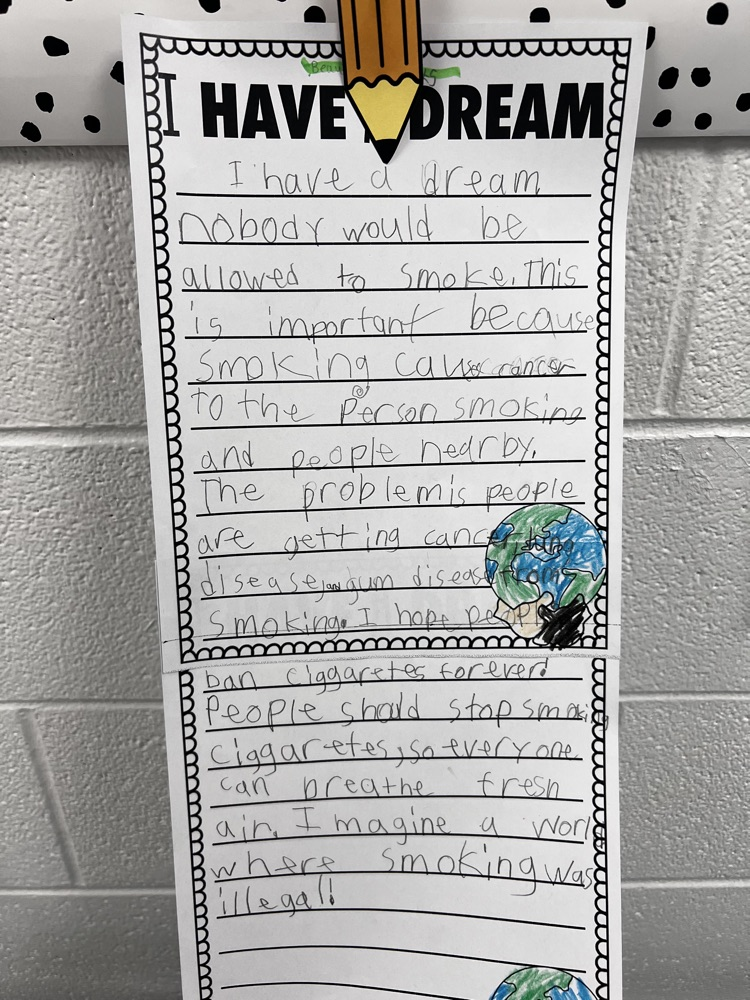 I HAVE DREAM
I have a dream
nobody would be
allowed to smoke. This
is important because
smoking causes cancer
to the Person smoking
and people nearby.
The problem is people
are getting cancer, lung
disease, and gum disease from
smoking. I hope people
ban ciggaretes forever!
People should stop smoking
ciggaretes, so everyone
can breathe fresh
air. Imagine a world
where smoking was
illegal!